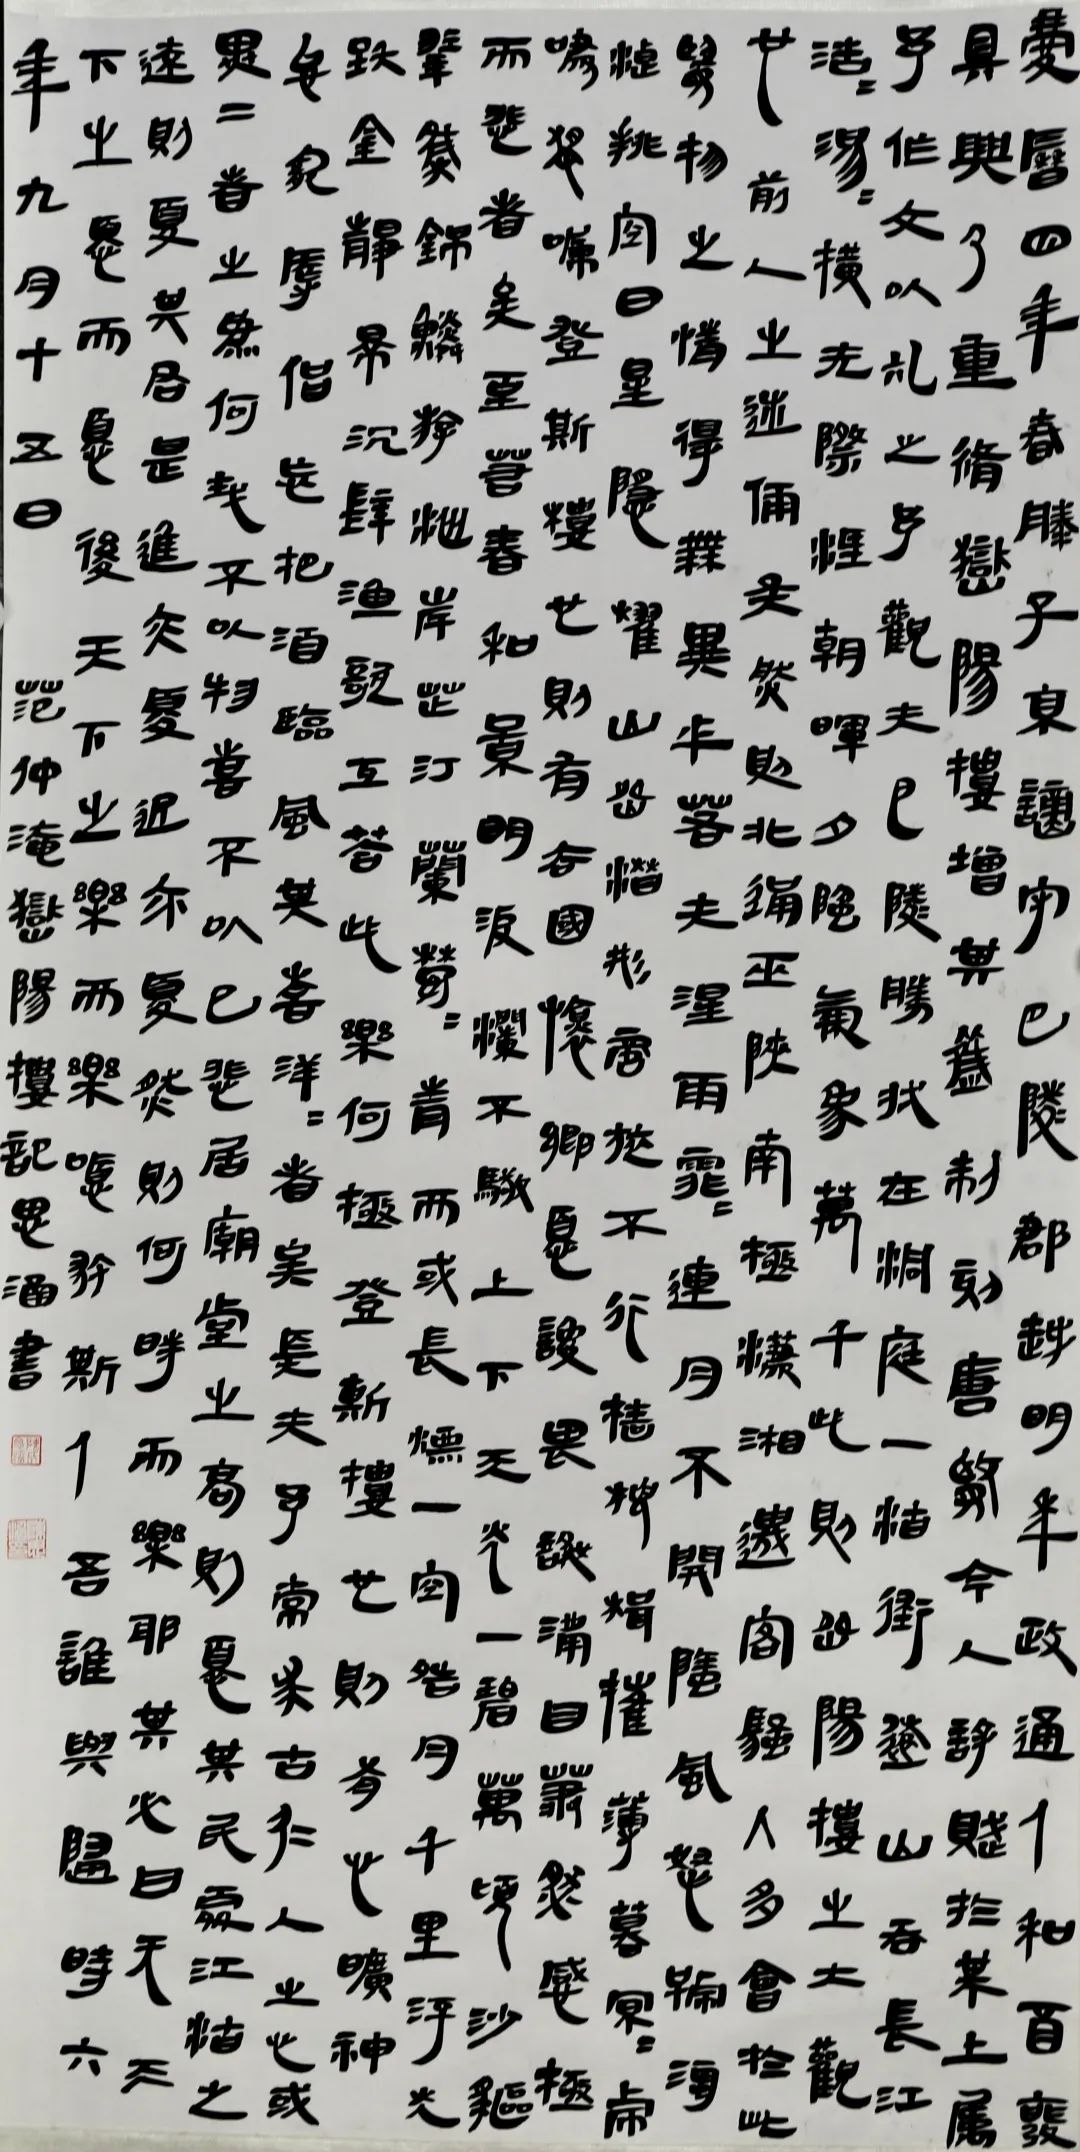 慶曆四年春滕子京謫守巴陵郡越明年政通人和百廢
具興乃重脩嶽陽樓增其舊制刻唐賢今人詩賦於其上屬
予作文以記之予觀夫巴陵勝狀在洞庭一湖銜遠山吞長江
浩浩湯湯橫无際涯朝暉夕陰氣象萬千此則岳陽樓之大觀
也前人之述備矣然則北通巫陝南極瀟湘遷客騷人多會於此
覽物之情得無異乎若夫淫雨霏霏連月不開陰風怒號濁
浪排空日星隱耀山岳潛形商旅不行檣傾楫摧薄暮冥冥虎
嘯猿啼登斯樓也則有去國懷鄉憂讒畏譏滿目蕭然感極
而悲者矣至若春和景明波瀾不驚上下天光一碧萬頃沙鷗
翔集錦鱗游泳岸芷汀蘭鬱鬱青青而或長煙一空皓月千里浮光
躍金靜影沉璧漁歌互答此樂何極登斯樓也則有心曠神
怡寵辱偕忘把酒臨風其喜洋洋者矣嗟夫予嘗求古仁人之心或
異二者之為何哉不以物喜不以己悲居廟堂之高則憂其民處江湖之
遠則憂其君是進亦憂退亦憂然則何時而樂耶其必曰先天
下之憂而憂後天下之樂而樂噫微斯人吾誰與歸時六
年九月十五日 范仲淹嶽陽樓記思涌書